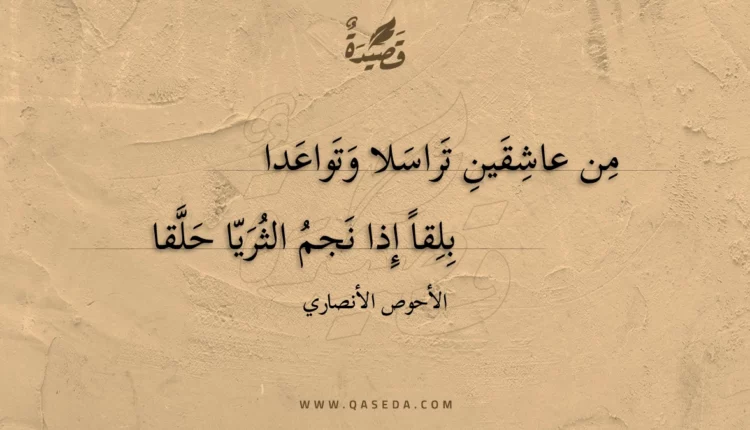 قَصِيدَةٌ
مِن عاشِقَينِ تَراسَلا وَتَواعَدا
بِلِقاً إِذا نَجمُ الثُرَيّا حَلَّقا
الأحوص الأنصاري
WWW.QASEDA.COM